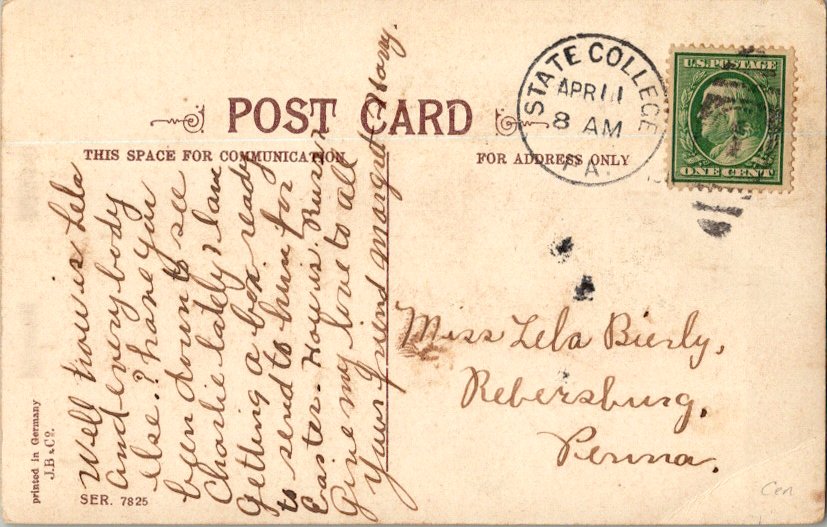 POST CARD
THIS SPACE FOR COMMUNICATION
FOR ADDRESS ONLY
STATE COLLEGE
APR 11
8 AM
PA.
U.S. POSTAGE
ONE CENT
Well how is Lela
and everybody
else? have you
been down to see
Charlie lately, I am
getting a box ready
to send to him for
Easter. How is
Give my love to all
Your friend Margret
Miss Lela Bierly,
Rebersburg,
Penna.
printed in Germany
J.B & Co.
SER. 7825
Cen